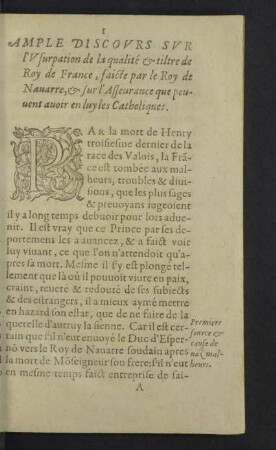 1
AMPLE DISCOVRS SVR
l'Vsurpation de la qualité & tiltre de
Roy de France, faicte par le Roy de
Nauarre, & sur l'Asseurance que peu-
uent auoir en luy les Catholiques.
PAR la mort de Henry
troisiesme dernier de la
race des Valois, la Frã-
ce est tombée aux mal-
heurs, troubles & diui-
sions, que les plus sages
& preuoyans iugeoient
il y a long temps debuoir pour lors adue-
nir. Il est vray que ce Prince par ses de-
portemens les a auancez, & a faict voir
luy viuant, ce que l'on n'attendoit qu'a-
pres sa mort. Mesme il s'y est plongé tel-
lement que là où il pouuoit viure en paix,
craint, reueré & redouté de ses subiects
& des estrangers, il a mieux aymé mettre
en hazard son estat, que de ne faire de la
querelle d'autruy la sienne. Car il est cer-
tain que s'il n'eut enuoyé le Duc d'Esper-
nõ vers le Roy de Nauarre soudain apres
la mort de Mõseigneur son frere: s'il n'eut
en mesme temps faict entreprise de sai-
Premiere
source &
cause de
noz mal-
heurs.
A